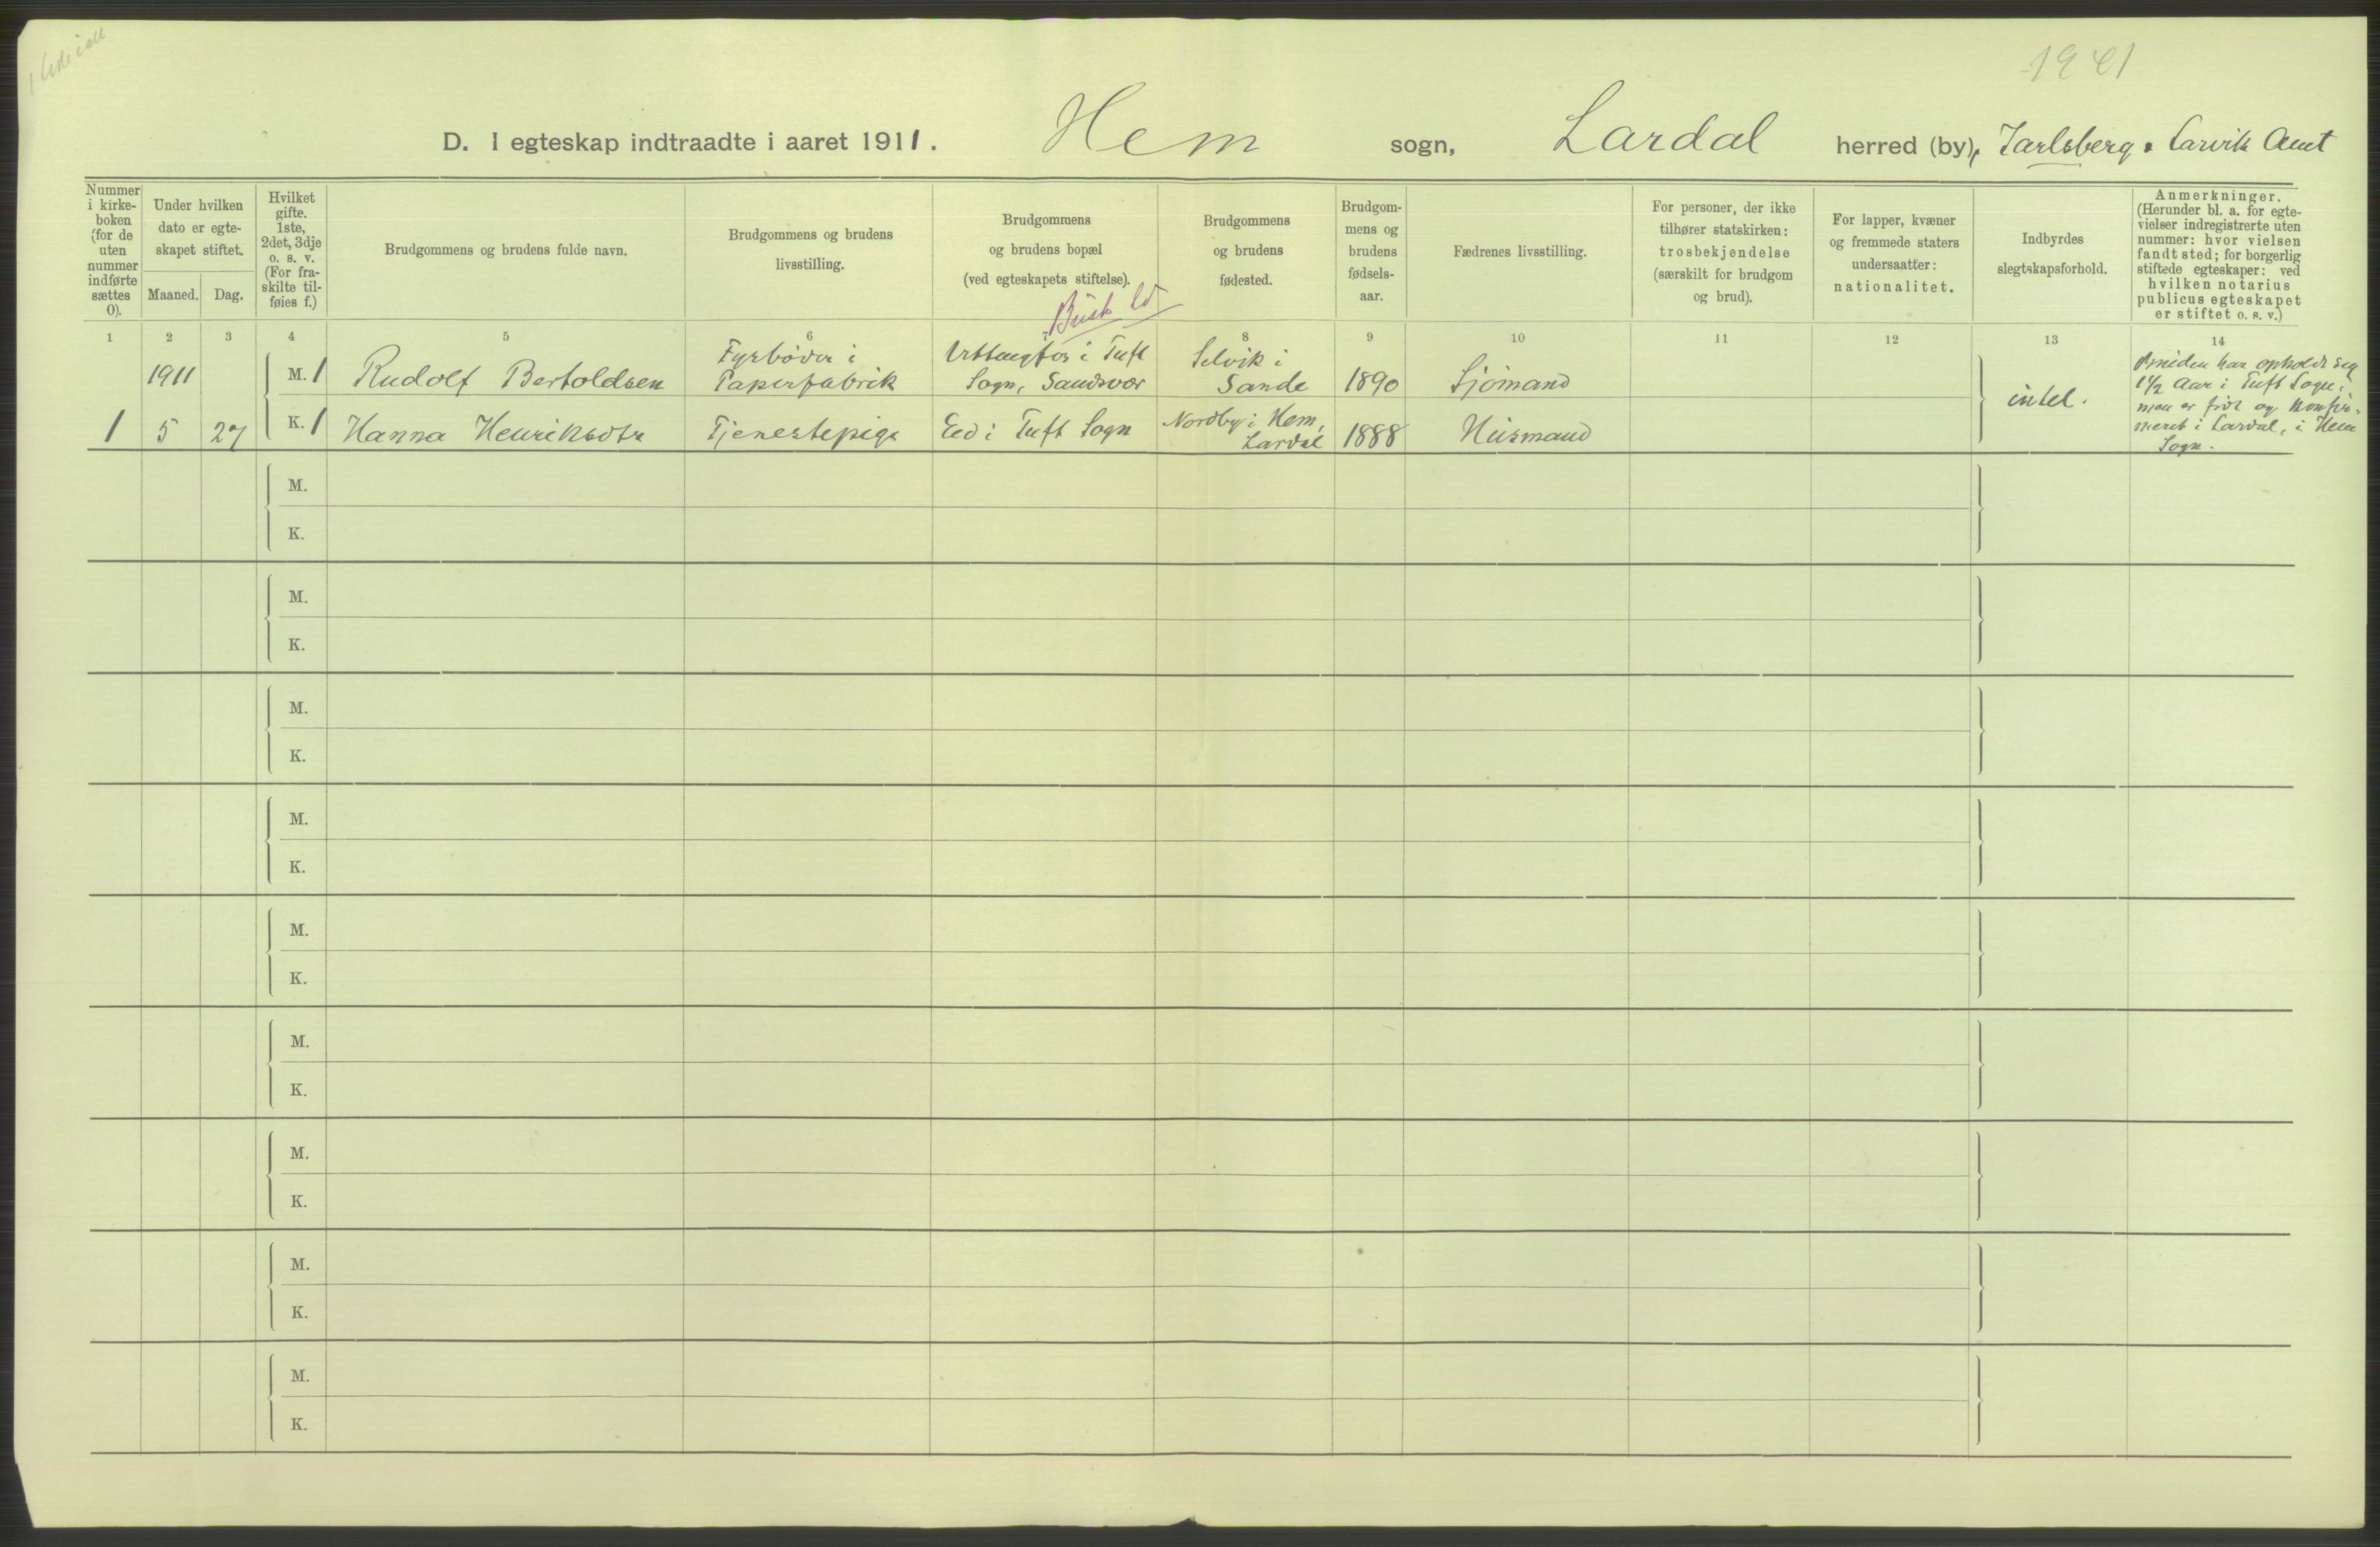 1941
D. I egteskap indtraadte i aaret 1911. Hem sogn, Lardal herred (by), Jarlsberg & Larvik Amt
Nummer i kirke-boken (for de uten nummer indførte sættes 0).
Under hvilken dato er egte-skapet stiftet.
Maaned.
Dag.
Hvilket gifte. 1ste, 2det, 3dje o. s. v. (For fra-skilte til-føies f.)
Brudgommens og brudens fulde navn.
Brudgommens og brudens livsstilling.
Brudgommens og brudens bopæl (ved egteskapets stiftelse).
Brudgommens og brudens fødested.
Brudgom-mens og brudens fødsels-aar.
Fædrenes livsstilling.
For personer, der ikke tilhører statskirken: trosbekjendelse (særskilt for brudgom og brud).
For lapper, kvæner og fremmede staters undersaatter: nationalitet.
Indbyrdes slegtskapsforhold.
Anmerkninger. (Herunder bl. a. for egte-vielser indregistrerte uten nummer: hvor vielsen fandt sted; for borgerlig stiftede egteskaper: ved hvilken notarius publicus egteskapet er stiftet o. s. v.)
Busk
1 2 3 4 5 6 7 8 9 10 11 12 13 14
1911 M. 1 Rudolf Bertoldsen Fyrbøder i Papirfabrik i Tuft Sogn, Sandsvær Selvik i Sande 1890 Sjømand
1 5 27 K. 1 Hanna Henriksdtr Tjenestepige Eed i Tuft Sogn Nordby i Hem, Lardal 1888 Husmand
intet.
Bruden har opholdt seg
1 1/2 Aar i Tuft Sogn,
men er født og konfir-
meret i Lardal, i Hem
Sogn.
M.
K.
M.
K.
M.
K.
M.
K.
M.
K.
M.
K.
M.
K.
M.
K.
M.
K.